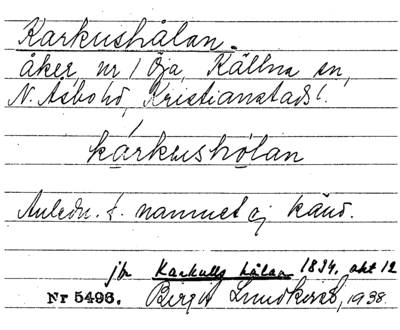 Karkushålan.
åker, nr 1 Öja, Källna sn,
N. Åsbo hd, Kristianstads l.
kárkushòlan
Anledn. t. namnet ej känd.
jfr Karkulls hålan 1834. akt 12
Nr 5496. Birgit Lundkvist, 1938.